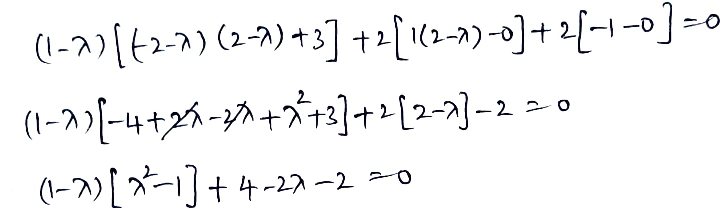 (1-λ)[(-2-λ)(2-λ)+3]+2[1(2-λ)-0]+2[-1-0]=0
(1-λ)[-4+2λ-2λ+λ²+3]+2[2-λ]-2=0
(1-λ)[λ²-1]+4-2λ-2=0